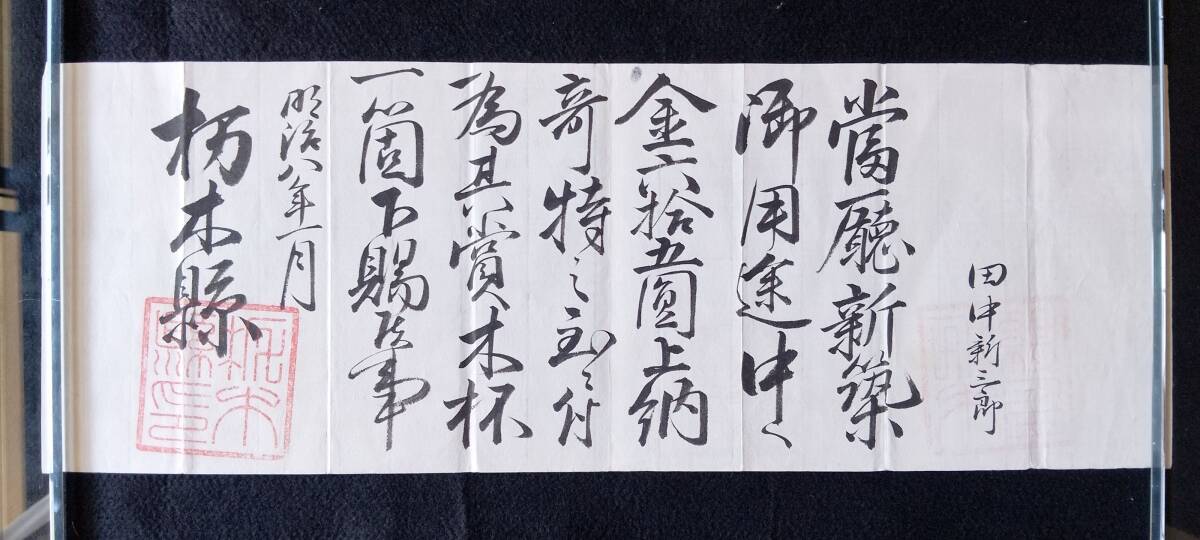 田中新三郎
當廳新築
御用途中へ
金六拾五圓上納
奇特之至ニ付
為其賞木杯
一箇下賜候事
明治八年一月
栃木縣